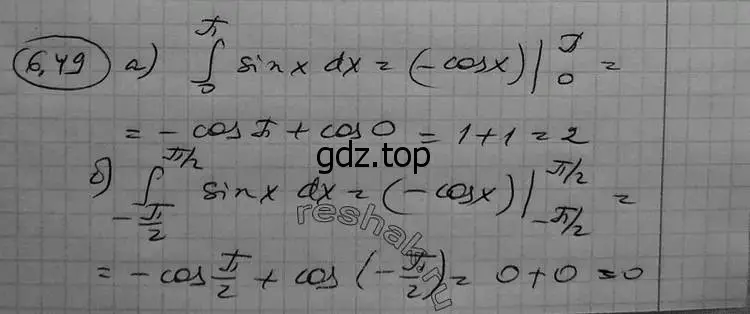 6.49 а) ∫₀^π sinx dx = (-cosx) |₀^π =
= -cosπ + cos0 = 1+1 = 2
gdz.top
б) ∫_{-π/2}^{π/2} sinx dx = (-cosx) |_{-π/2}^{π/2} =
= -cos π/2 + cos (-π/2) = 0+0 = 0